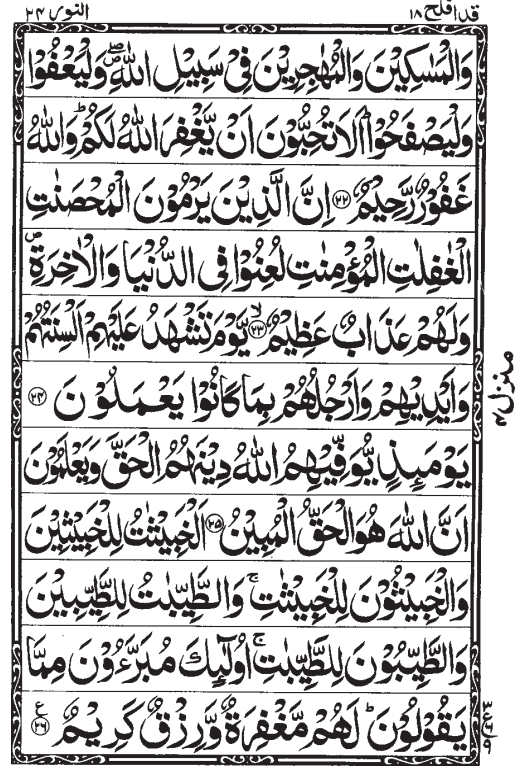 قد افلح ١٨
النور ٢٤
وَالْمَسٰكِيْنَ وَالْمُهٰجِرِيْنَ فِيْ سَبِيْلِ اللّٰهِ ۖ وَلْيَعْفُوْا
وَلْيَصْفَحُوْا ؕ اَلَا تُحِبُّوْنَ اَنْ يَّغْفِرَ اللّٰهُ لَكُمْ ؕ وَاللّٰهُ
غَفُوْرٌ رَّحِيْمٌ ﴿٢٢﴾ اِنَّ الَّذِيْنَ يَرْمُوْنَ الْمُحْصَنٰتِ
الْغٰفِلٰتِ الْمُؤْمِنٰتِ لُعِنُوْا فِى الدُّنْيَا وَالْاٰخِرَةِ ۪
وَلَهُمْ عَذَابٌ عَظِيْمٌ ۙ﴿٢٣﴾ يَّوْمَ تَشْهَدُ عَلَيْهِمْ اَلْسِنَتُهُمْ
وَاَيْدِيْهِمْ وَاَرْجُلُهُمْ بِمَا كَانُوْا يَعْمَلُوْنَ ﴿٢٤﴾
يَوْمَىِٕذٍ يُّوَفِّيْهِمُ اللّٰهُ دِيْنَهُمُ الْحَقَّ وَيَعْلَمُوْنَ
اَنَّ اللّٰهَ هُوَ الْحَقُّ الْمُبِيْنُ ﴿٢٥﴾ اَلْخَبِيْثٰتُ لِلْخَبِيْثِيْنَ
وَالْخَبِيْثُوْنَ لِلْخَبِيْثٰتِ ۚ وَالطَّيِّبٰتُ لِلطَّيِّبِيْنَ
وَالطَّيِّبُوْنَ لِلطَّيِّبٰتِ ۚ اُولٰٓىِٕكَ مُبَرَّءُوْنَ مِمَّا
يَقُوْلُوْنَ ؕ لَهُمْ مَّغْفِرَةٌ وَّرِزْقٌ كَرِيْمٌ ﴿٢٦﴾ ع
منزل ٤